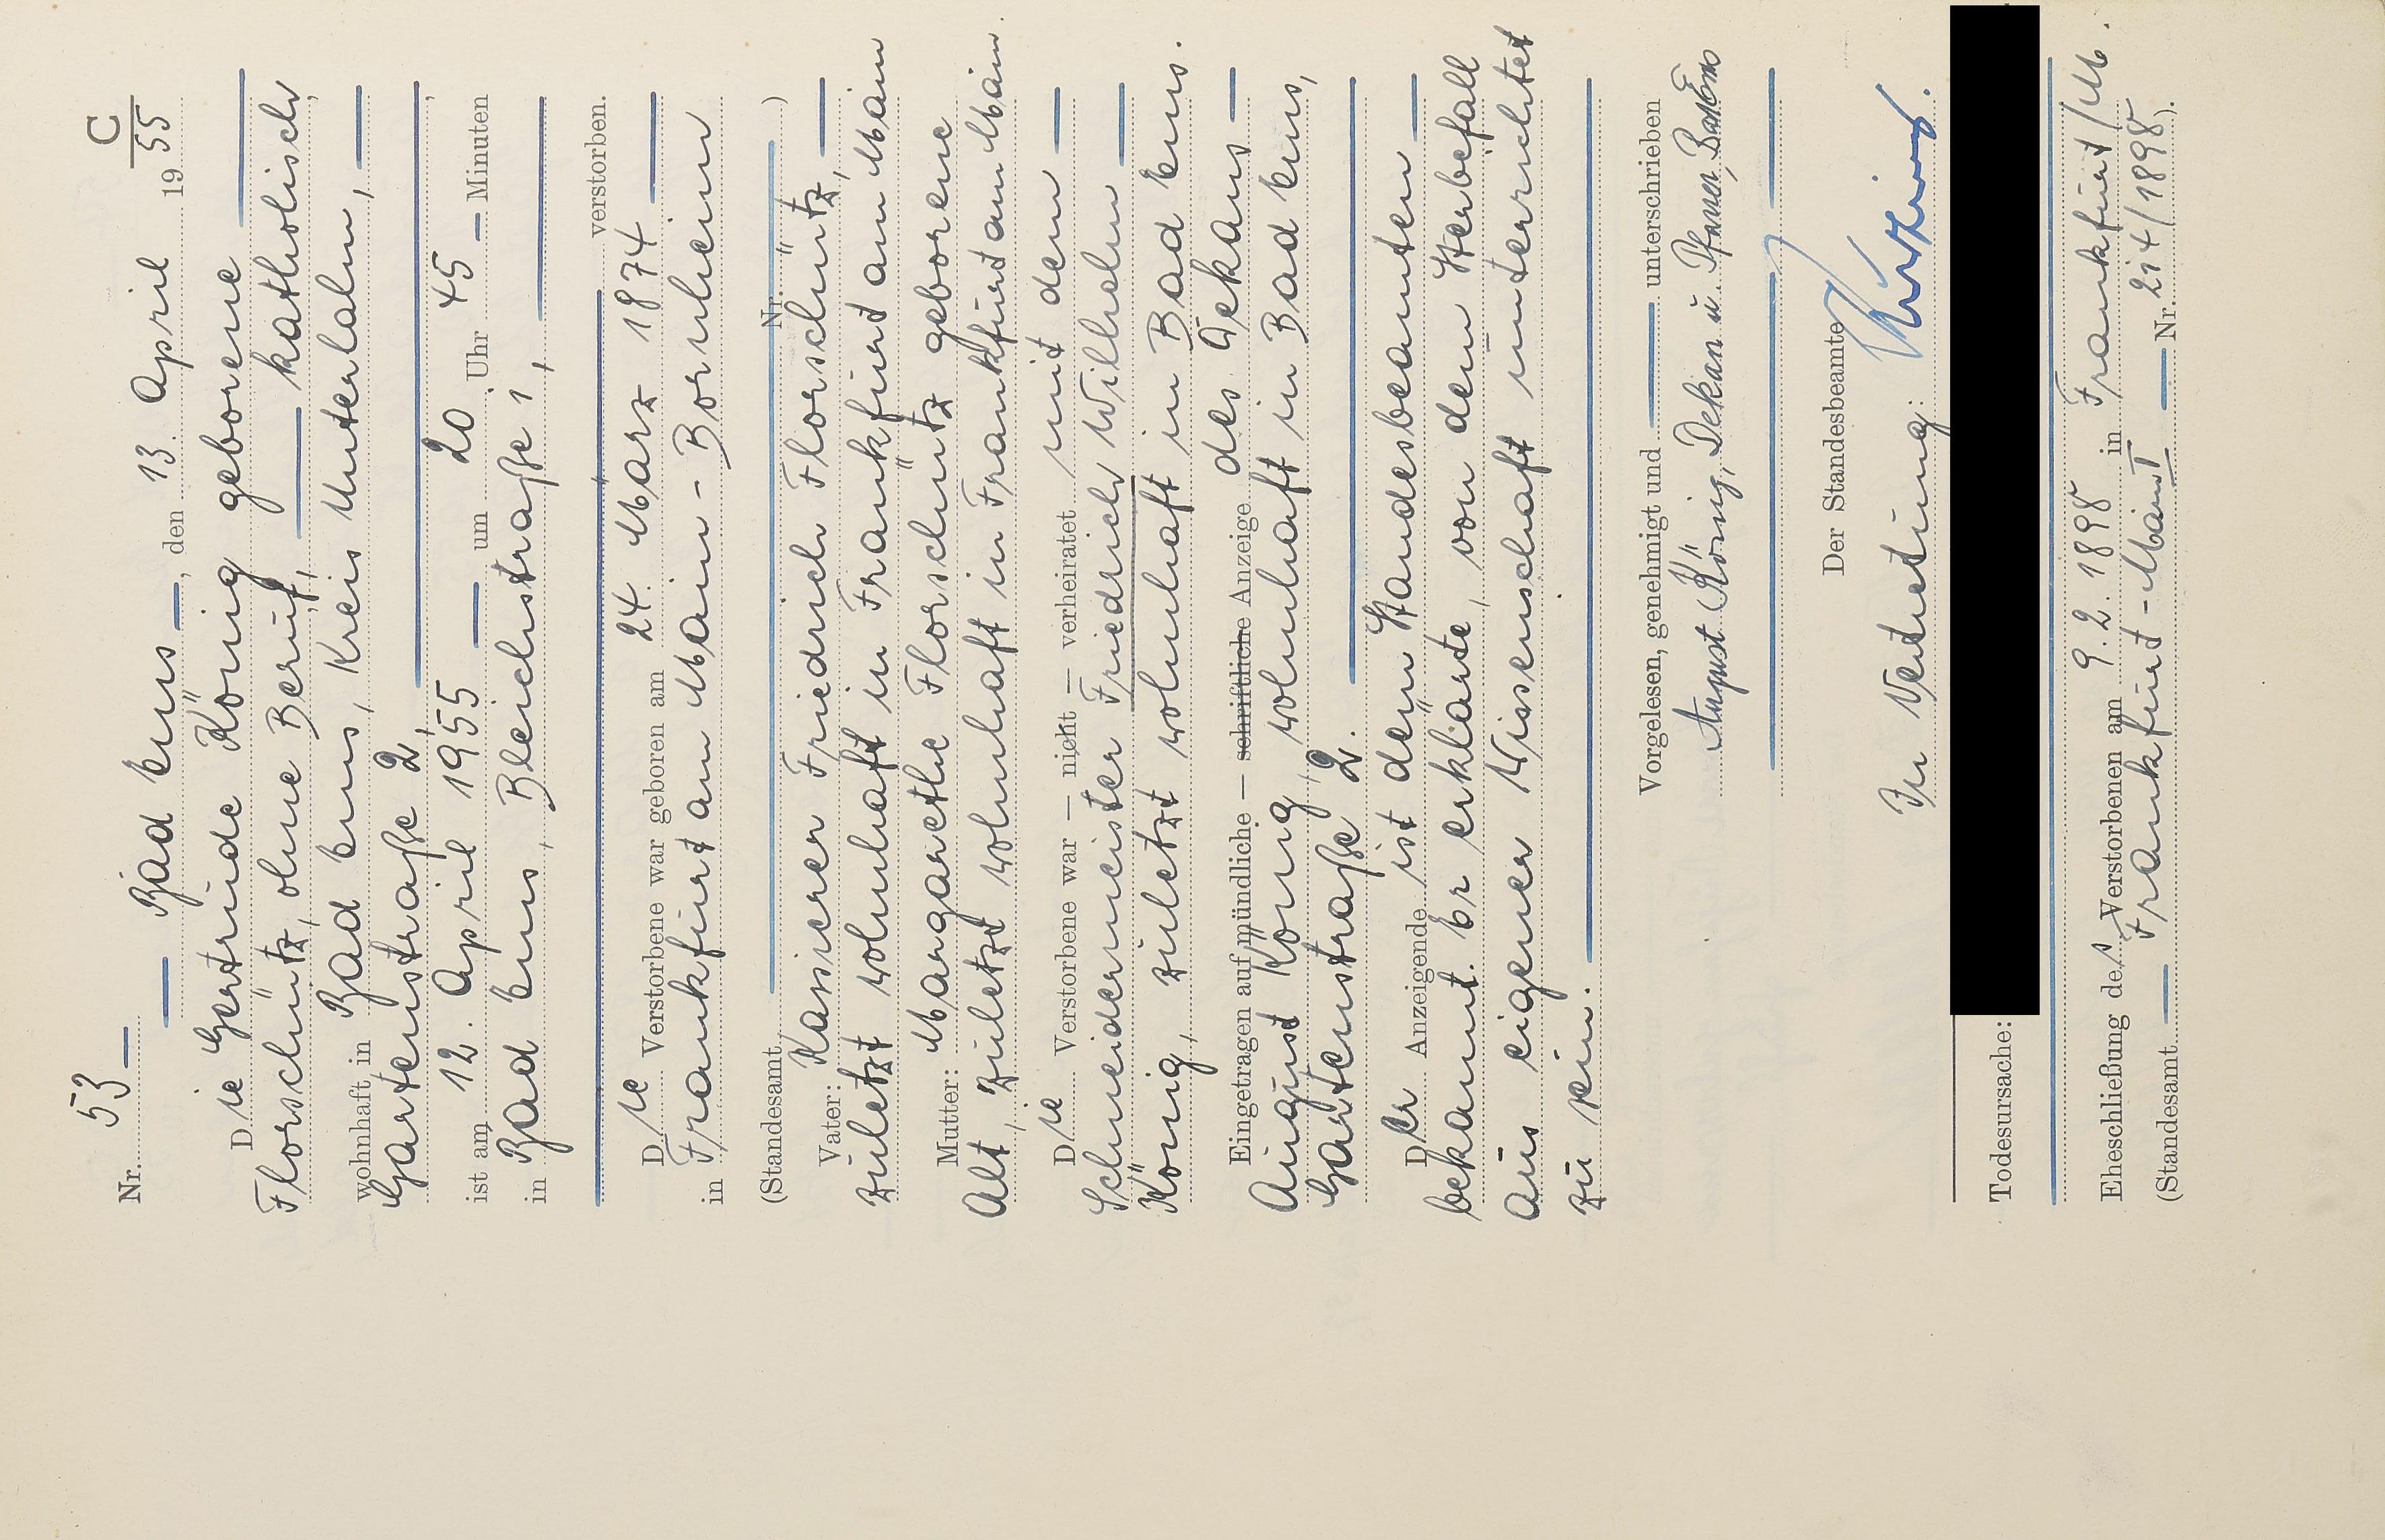 C
Nr. 53
Bad Ems, den 13. April 1955
Die Gertrude König geborene
Florschütz, ohne Beruf, katholisch,
wohnhaft in Bad Ems, Kreis Unterlahn,
Gartenstraße 2,
ist am 12. April 1955 um 20 Uhr 45 Minuten
in Bad Ems, Bleichstraße 1,
verstorben.
Die Verstorbene war geboren am 24. März 1874
in Frankfurt am Main - Bornheim
(Standesamt Nr. )
Vater: Kassierer Friedrich Florschütz,
zuletzt wohnhaft in Frankfurt am Main
Mutter: Margarethe Florschütz geborene
Alt, zuletzt wohnhaft in Frankfurt am Main.
Die Verstorbene war — nicht — verheiratet mit dem
Schneidermeister Friedrich Wilhelm
König, zuletzt wohnhaft in Bad Ems.
Eingetragen auf mündliche — schriftliche Anzeige des Dekans
August König, wohnhaft in Bad Ems,
Gartenstraße 2.
Der Anzeigende ist dem Standesbeamten
bekannt. Er erklärte, von dem Sterbefall
aus eigener Wissenschaft unterrichtet
zu sein.
Vorgelesen, genehmigt und unterschrieben
August König, Dekan u. Pfarrer, Bad Ems
Der Standesbeamte
In Vertretung:
Todesursache:
Eheschließung der Verstorbenen am 9.2.1898 in Frankfurt/M.
(Standesamt Frankfurt-Main I Nr. 214/1898).